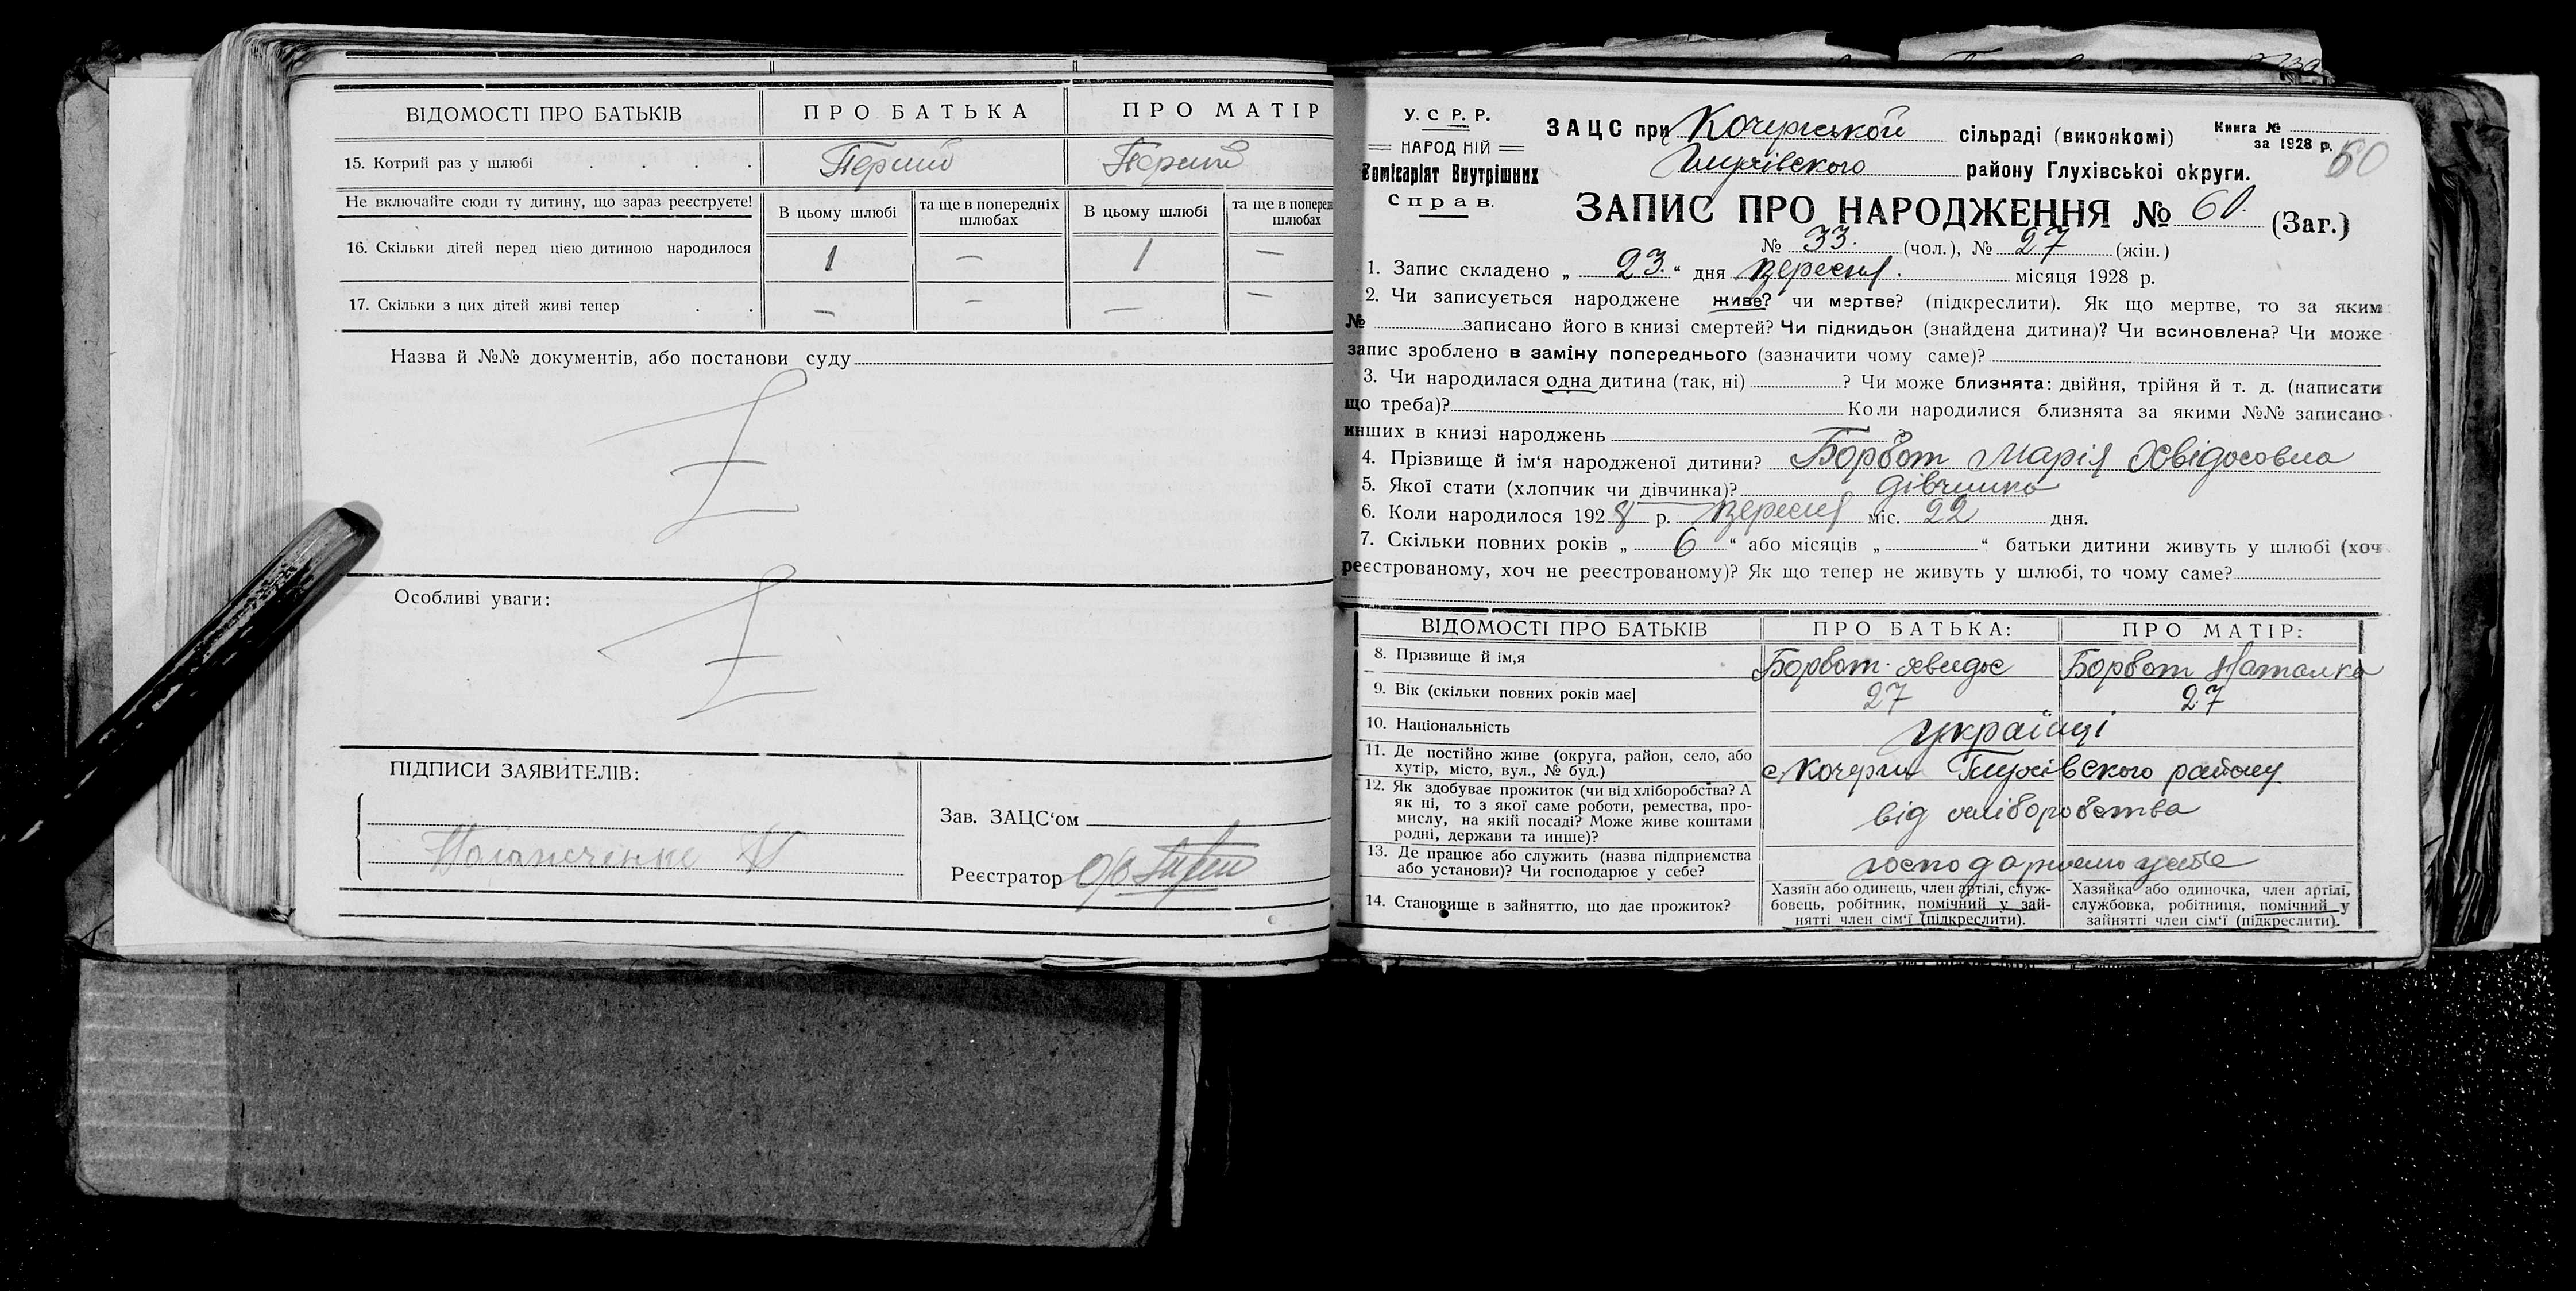 ВІДОМОСТІ ПРО БАТЬКІВ
ПРО БАТЬКА
ПРО МАТІР
15. Котрий раз у шлюбі
Перший
Перший
Не включайте сюди ту дитину, що зараз реєструєте!
В цьому шлюбі
та ще в попередніх шлюбах
В цьому шлюбі
та ще в поперед
шлюбах
16. Скільки дітей перед цією дитиною народилося
1 — 1 —
17. Скільки з цих дітей живі тепер
— — — —
Назва й №№ документів, або постанови суду
Особливі уваги:
ПІДПИСИ ЗАЯВИТЕЛІВ:
Зав. ЗАЦС'ом
Реєстратор
У. С. Р. Р.
НАРОДНІЙ
Комісаріят Внутрішних
Справ.
ЗАЦС при Кочергської сільраді (виконкомі)
Глухівского району Глухівської округи.
Книга №
за 1928 р.
60
ЗАПИС ПРО НАРОДЖЕННЯ № 60. (Заг.)
№ 33. (чол.), № 27 (жін.)
1. Запис складено „ 23. “ дня вересня. місяця 1928 р.
2. Чи записується народжене живе? чи мертве? (підкреслити). Як що мертве, то за яким
№ записано його в книзі смертей? Чи підкидьок (знайдена дитина)? Чи всиновлена? Чи може
запис зроблено в заміну попереднього (зазначити чому саме)?
3. Чи народилася одна дитина (так, ні) ? Чи може близнята: двійня, трійня й т. д. (написати
що треба)? Коли народилися близнята за якими №№ записано
инших в книзі народжень
4. Прізвище й ім'я народженої дитини? Борвот Марія Хвідосовна
5. Якої стати (хлопчик чи дівчинка)? дівчинка
6. Коли народилося 1928 р. вересня міс. 22 дня.
7. Скільки повних років „ 6 “ або місяців „ “ батьки дитини живуть у шлюбі (хоч
реєстрованому, хоч не реєстрованому)? Як що тепер не живуть у шлюбі, то чому саме?
ВІДОМОСТІ ПРО БАТЬКІВ
ПРО БАТЬКА:
ПРО МАТІР:
8. Прізвище й ім,я
Борвот Хведос
Борвот Наталка
9. Вік (скільки повних років має]
27
27
10. Національність
українці
11. Де постійно живе (округа, район, село, або
хутір, місто, вул., № буд.)
с Кочерги Глухівского району
12. Як здобуває прожиток (чи від хліборобства? А
як ні, то з якої саме роботи, ремества, про-
мислу, на якій посаді? Може живе коштами
родні, держави та инше)?
від хліборобства
13. Де працює або служить (назва підприємства
або установи)? Чи господарює у себе?
14. Становище в зайняттю, що дає прожиток?
Хазяїн або одинець, член артілі, служ-
бовець, робітник, помічний у зай-
нятті член сім'ї (підкреслити).
Хазяйка або одиночка, член артілі,
службовка, робітниця, помічний у
зайнятті член сім'ї (підкреслити).